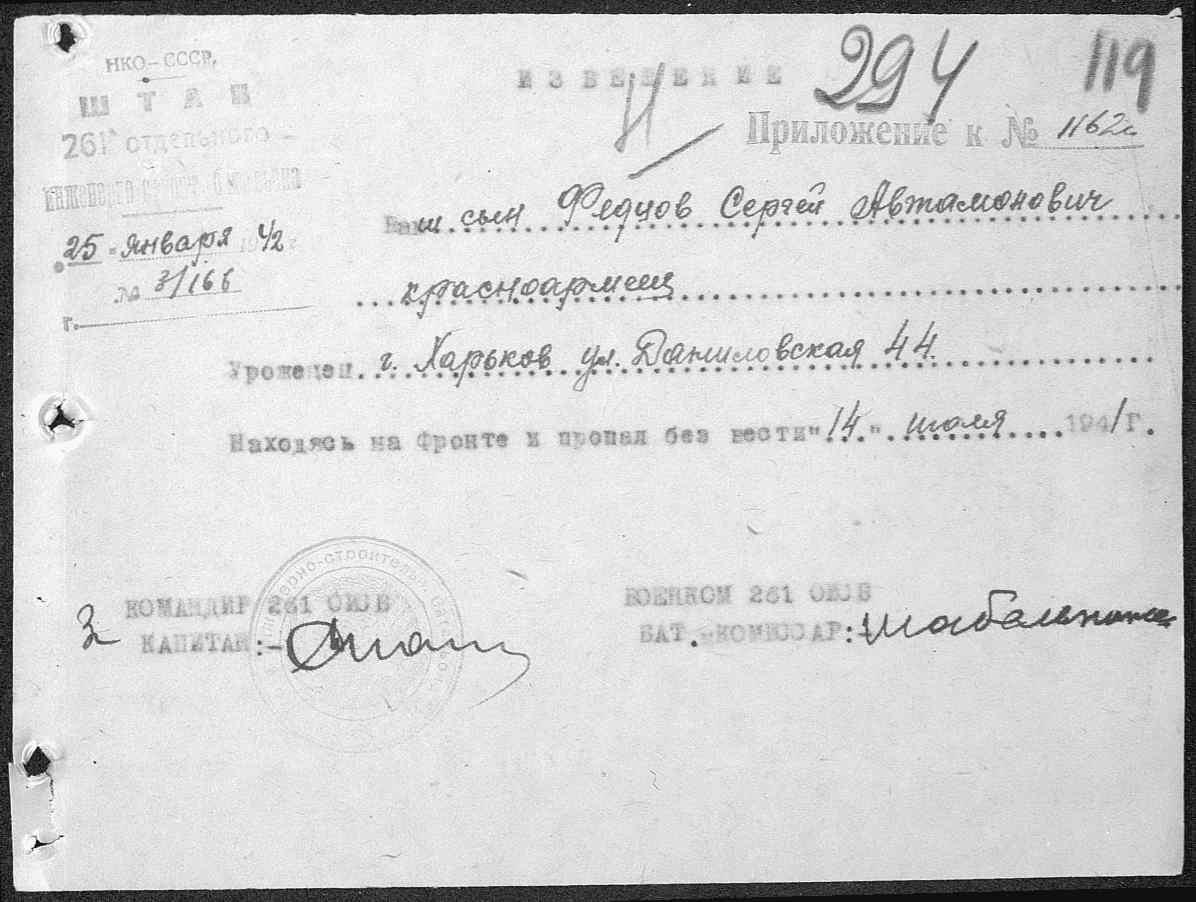 НКО-СССР,
ШТАБ
261 отдельного
инженерно строит. батальона
"25" января 1942 г.
№ 3/166
г.
294 119
ИЗВЕЩЕНИЕ
Приложение к № 1162с
Ваш сын Федцов Сергей Автамонович
красноармеец
Уроженец г. Харьков ул. Даниловская 44
Находясь на фронте и пропал без вести "14" июля 1941 г.
КОМАНДИР 261 ОИСБ
КАПИТАН:-
ВОЕНКОМ 261 ОИСБ
БАТ. КОМИССАР:-